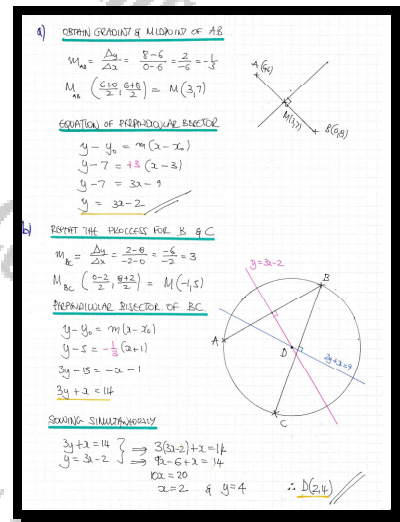 a) OBTAIN GRADINT & MIDPOINT OF AB
m_AB = Δy/Δx = 8-6/0-6 = 2/-6 = -1/3
M_AB (6+0/2, 6+8/2) = M(3,7)
A(6,6)
M(3,7)
B(0,8)
EQUATION OF PERPENDICULAR BISECTOR
y - y₀ = m(x - x₀)
y - 7 = +3(x - 3)
y - 7 = 3x - 9
y = 3x - 2
b) REPEAT THE PROCCESS FOR B & C
m_BC = Δy/Δx = 2-8/-2-0 = -6/-2 = 3
M_BC (0-2/2, 8+2/2) = M(-1,5)
PERPENDICULAR BISECTOR OF BC
y - y₀ = m(x - x₀)
y - 5 = -1/3(x+1)
3y - 15 = -x - 1
3y + x = 14
y = 3x-2
B
A
D
C
SOLVING SIMULTANEOUSLY
3y + x = 14
y = 3x - 2
} ⇒ 3(3x-2) + x = 14
⇒ 9x - 6 + x = 14
10x = 20
x = 2 & y = 4
∴ D(2,4)